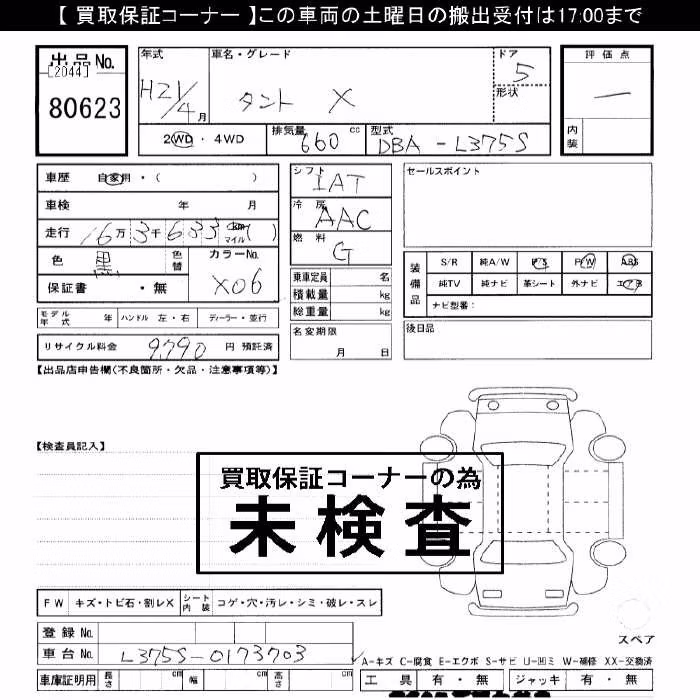 【 買取保証コーナー 】この車両の土曜日の搬出受付は17:00まで
出品No. [2044] 80623
年式 H21/4月
車名・グレード タント X
ドア 5
形状
評価点 —
内装
2WD・4WD
排気量 660 cc
型式 DBA-L375S
車歴 自家用・( )
車検 年 月
走行 16万3千633 km マイル ( )
色 黒 色替
カラーNo. X06
保証書 ・無
シフト IAT
冷房 AAC
燃料 G
乗車定員 名
積載量 kg
総重量 kg
セールスポイント
装備品
S/R 純A/W P/S P/W ABS
純TV 純ナビ 革シート 外ナビ エアB
ナビ型番:
モデル年式 年 ハンドル 左・右 ディーラー・並行
名変期限 月 日
後日品
リサイクル料金 9,790 円 預託済
【出品店申告欄(不良箇所・欠品・注意事項等)】
【検査員記入】
買取保証コーナーの為
未検査
FW キズ・トビ石・割レX シート内装 コゲ・穴・汚レ・シミ・破レ・スレ
スペア
登録No.
車台No. L375S-0173703
A-キズ C-腐食 E-エクボ S-サビ U-凹ミ W-補修 XX-交換済
車庫証明用 長さ cm 幅 cm 高さ cm
工具 有・無 ジャッキ 有・無